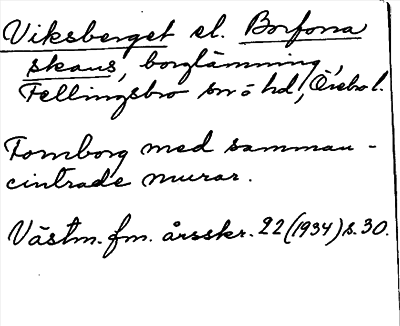 Viksberget el. Borforra
skans, borglämning,
Fellingsbro sn o hd, Örebro l.
Fornborg med samman-
cintrade murar.
Västm. fm. årsskr. 22 (1934) s. 30.